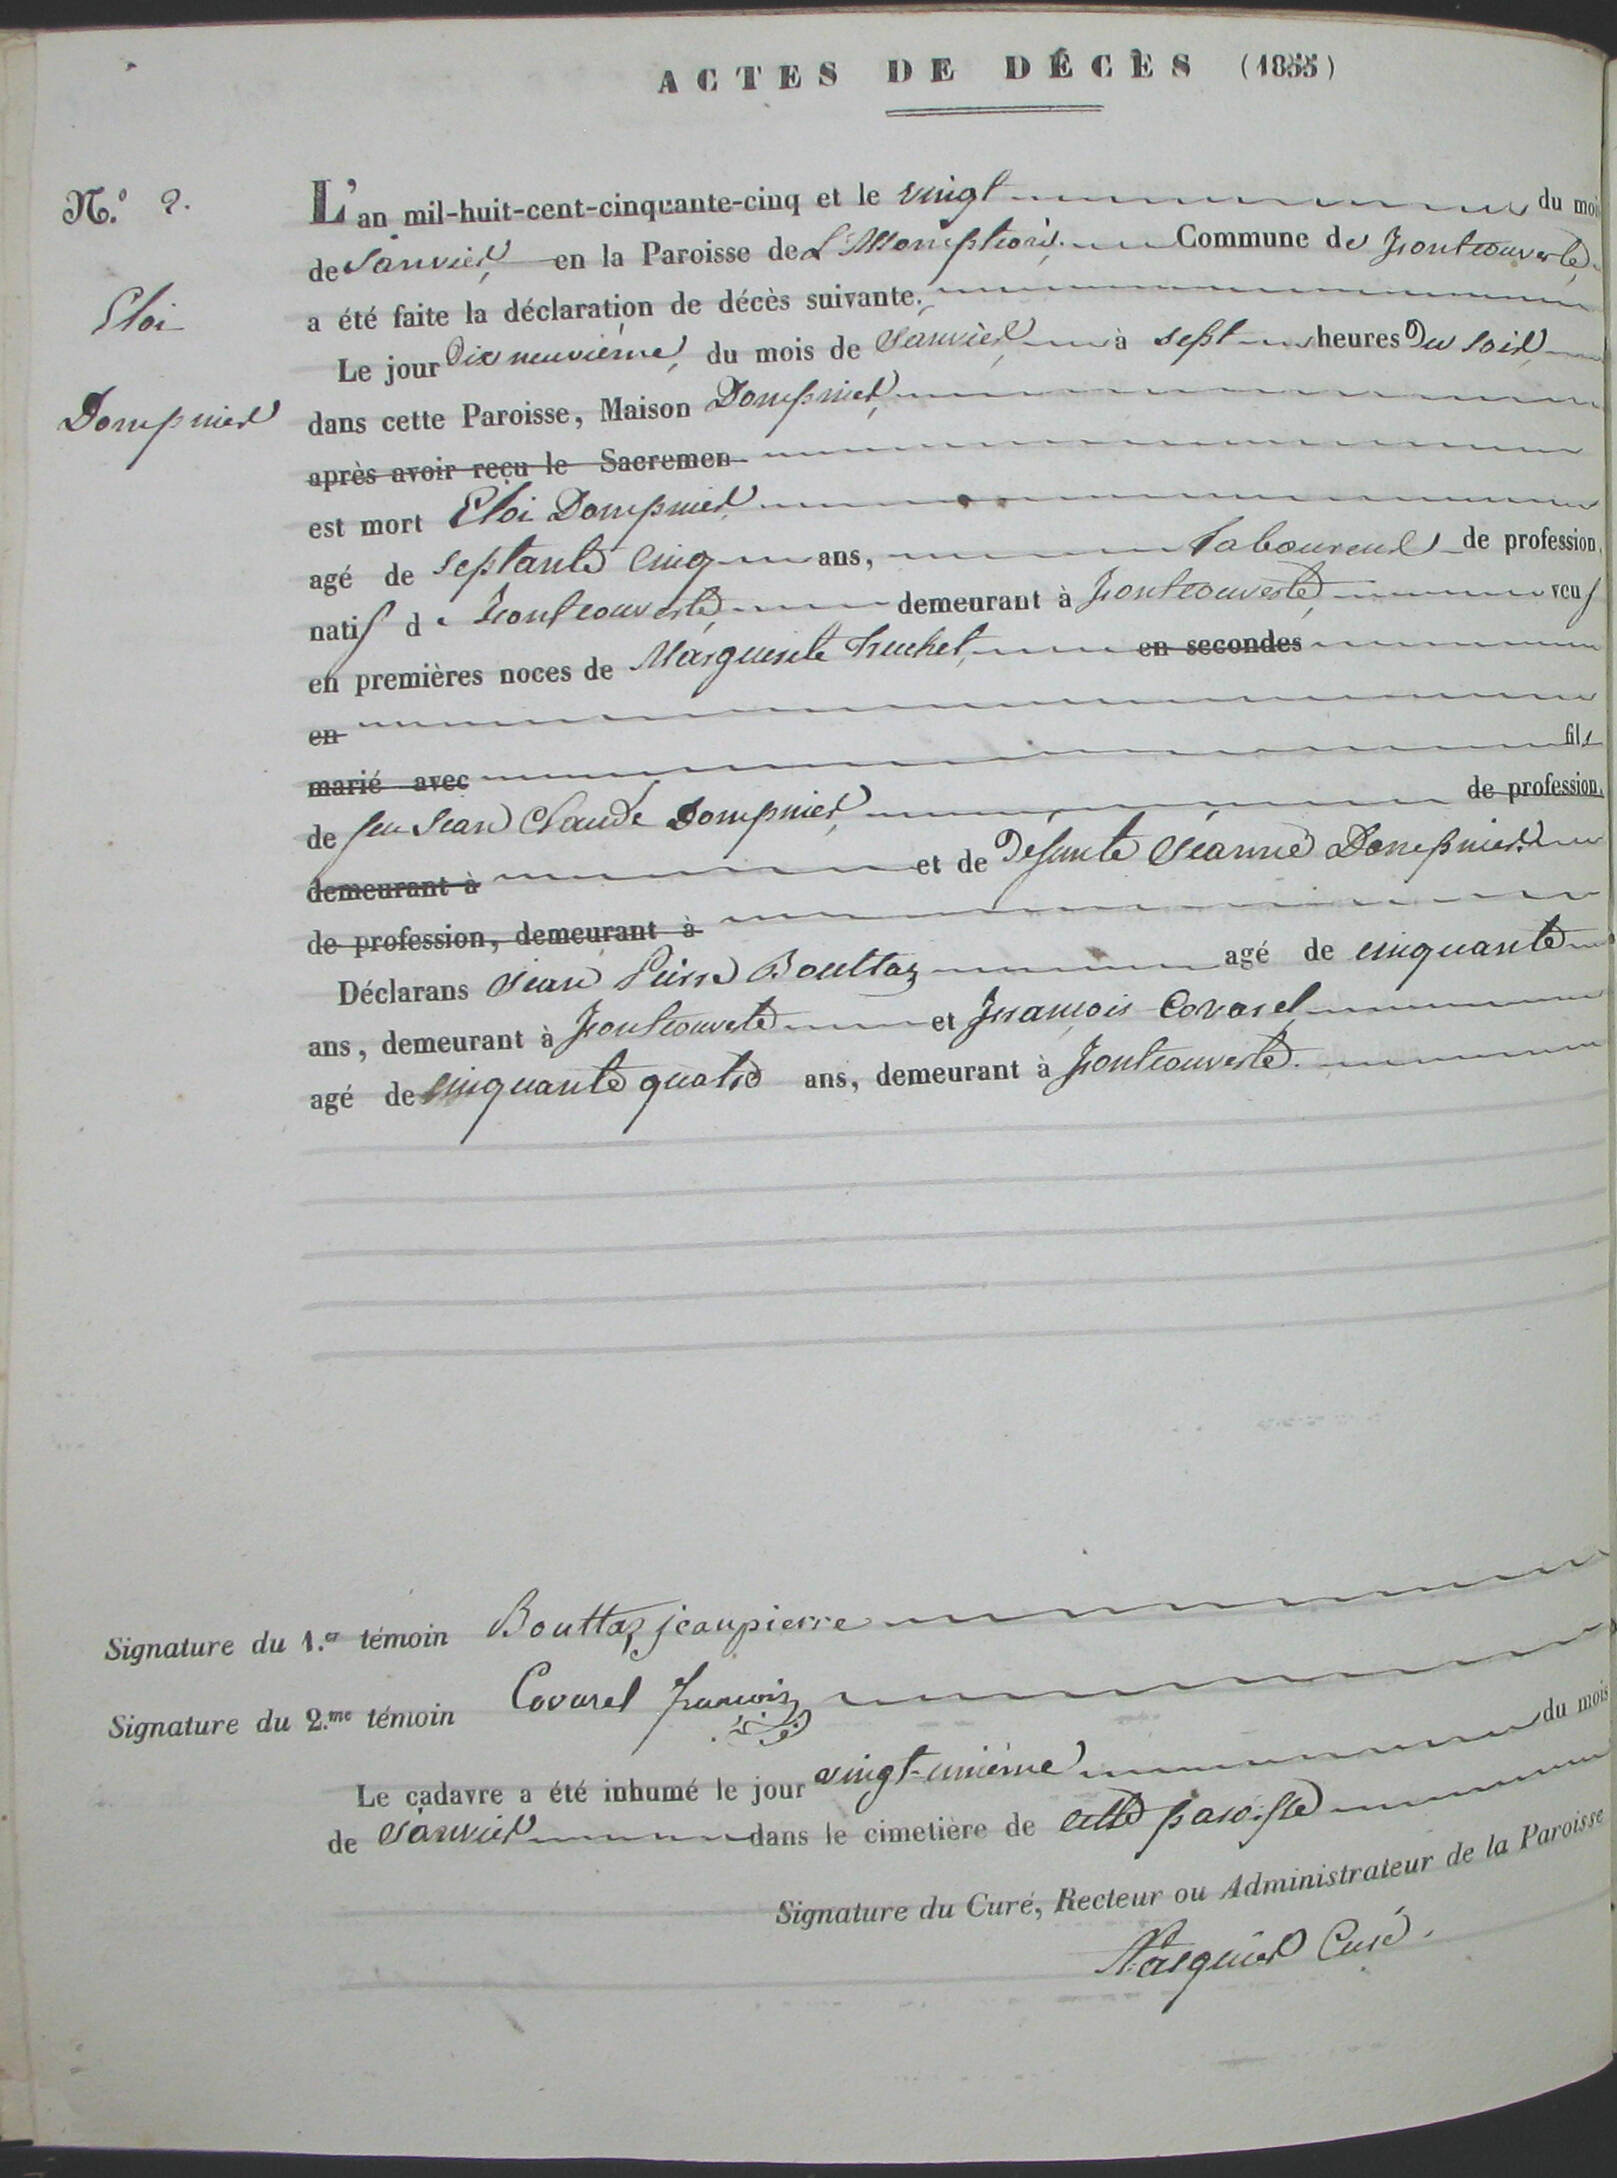 ACTES DE DÉCÈS (1855)
N.º 2.
Eloi
Dompnier
L'an mil-huit-cent-cinquante-cinq et le vingt du mois
de Janvier, en la Paroisse de L'Assomption. Commune de Fontcouverte
a été faite la déclaration de décès suivante.
Le jour Dix neuvième, du mois de Janvier, à sept heures Du soir
dans cette Paroisse, Maison Dompnier,
après avoir reçu le Sacremen
est mort Eloi Dompnier
agé de septante cinq ans, Laboureur de profession,
natif de Fontcouverte, demeurant à Fontcouverte, veuf
en premières noces de Marguerite Truchet, en secondes
en
marié avec fils
de feu Jean Claude Dompnier, de profession,
demeurant à et de Défunte Jeanne Dompnier.
de profession, demeurant à
Déclarans Jean Pierre Bouttaz agé de cinquante
ans, demeurant à Fontcouverte et François Covarel
agé de cinquante quatre ans, demeurant à Fontcouverte.
Signature du 1.er témoin Bouttaz jeanpierre
Signature du 2.me témoin Covarel francois
Le cadavre a été inhumé le jour vingt-unième du mois
de Janvier dans le cimetière de cette paroisse
Signature du Curé, Recteur ou Administrateur de la Paroisse
Curé.